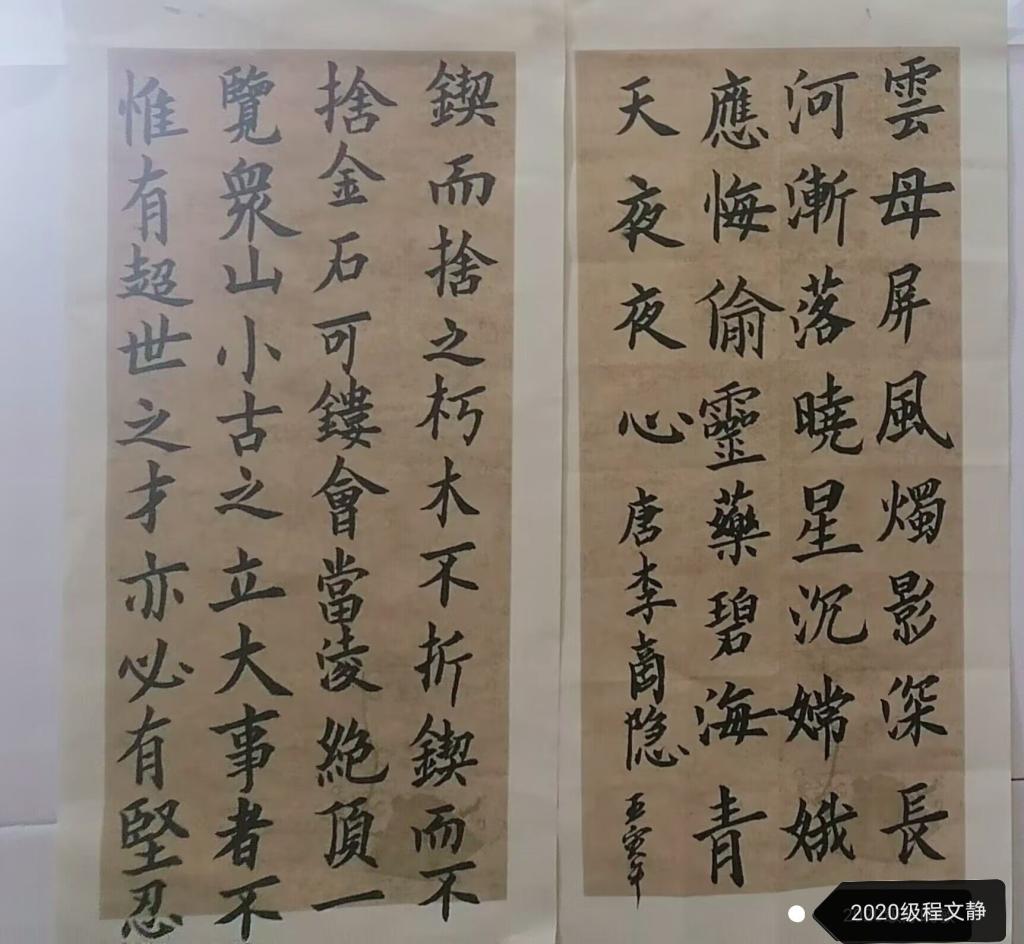 雲母屏風燭影深長
河漸落曉星沉嫦娥
應悔偷靈藥碧海青
天夜夜心唐李商隐
壬寅年
鍥而捨之朽木不折鍥而不
捨金石可鏤會當凌絕頂一
覽衆山小古之立大事者不
惟有超世之才亦必有堅忍
2020级程文静